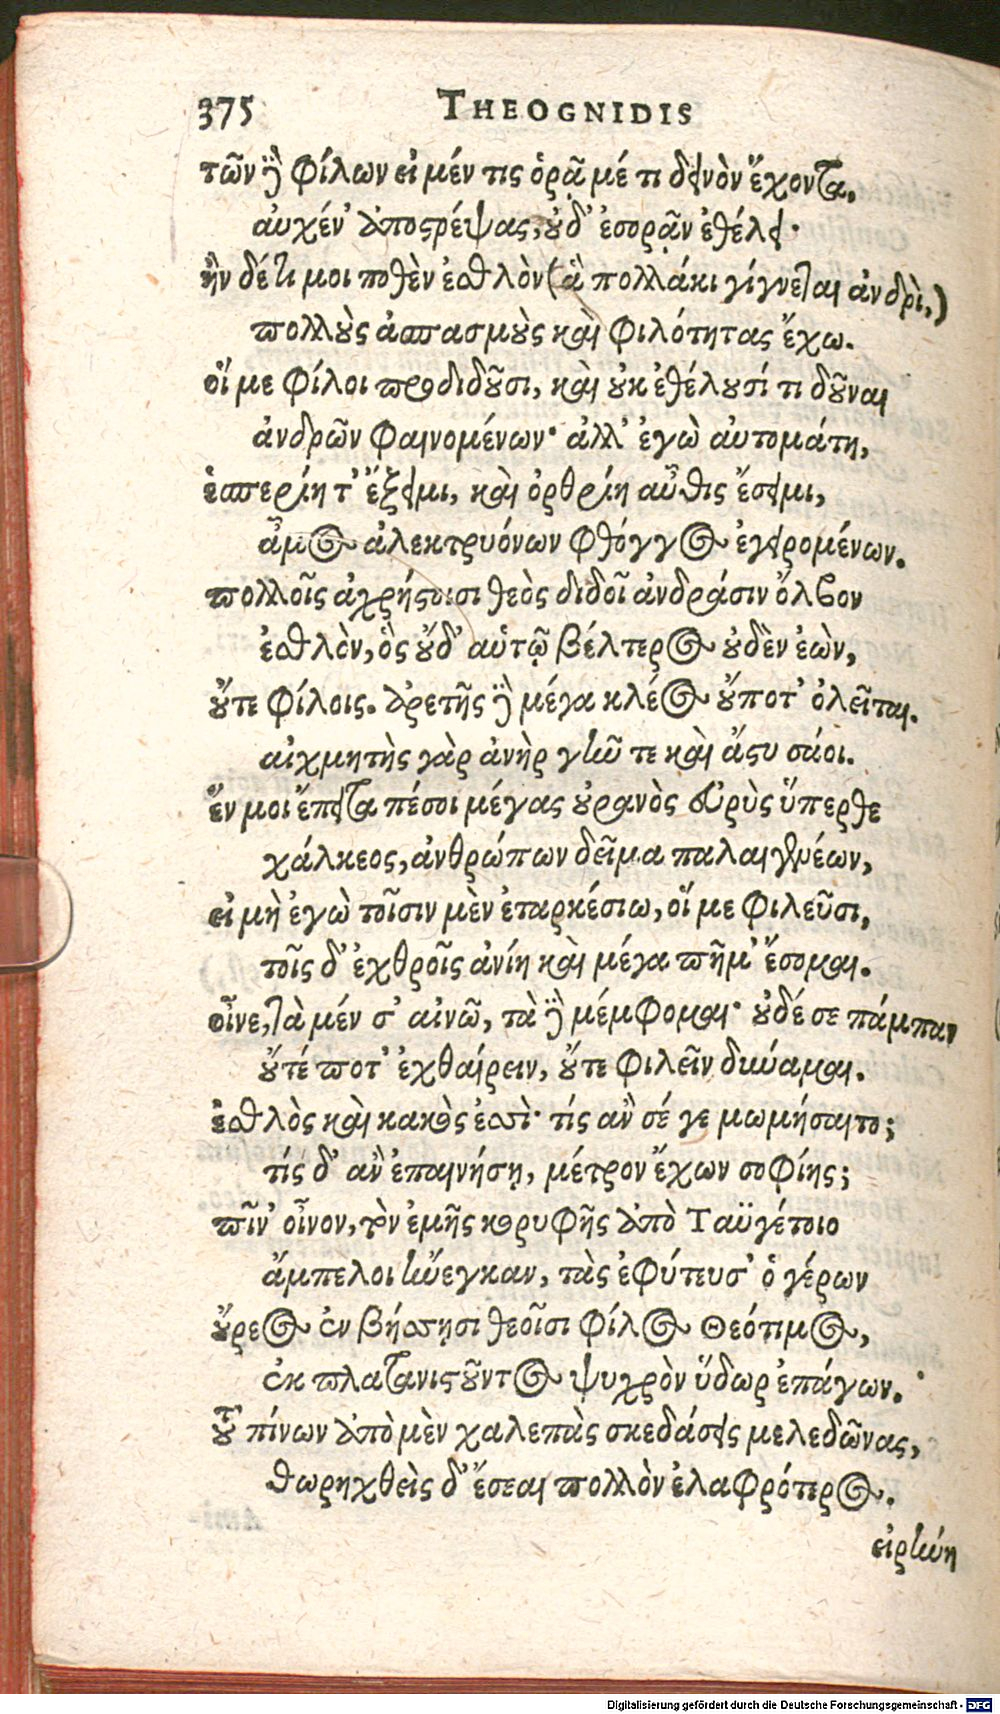 375 THEOGNIDIS
τῶν δὲ φίλων εἰ μέν τις ὁρᾷ μέ τι δεινὸν ἔχοντα,
αὐχέν' ἀποστρέψας, οὐδ' ἐσορᾷν ἐθέλει·
ἢν δέ τι μοι ποθὲν ἐσθλὸν (ἃ πολλάκι γίγνεται ἀνδρὶ,)
πολλοὺς ἀσπασμοὺς καὶ φιλότητας ἔχω.
οἵ με φίλοι προδιδοῦσι, καὶ οὐκ ἐθέλουσί τι δοῦναι
ἀνδρῶν φαινομένων· ἀλλ' ἐγὼ αὐτομάτη,
ἑσπερίη τ' ἔξειμι, καὶ ὀρθρίη αὖθις ἔσειμι,
ἆμος ἀλεκτρυόνων φθόγγος ἐγειρομένων.
πολλοῖς ἀχρήστοισι θεὸς διδοῖ ἀνδράσιν ὄλβον
ἐσθλὸν, ὃς οὔδ' αὑτῷ βέλτερος οὐδὲν ἐὼν,
οὔτε φίλοις. ἀρετῆς δὲ μέγα κλέος οὔποτ' ὀλεῖται.
αἰχμητὴς γὰρ ἀνὴρ γῆν τε καὶ ἄστυ σάοι.
ἔν μοι ἔπειτα πέσοι μέγας οὐρανὸς εὐρὺς ὕπερθε
χάλκεος, ἀνθρώπων δεῖμα παλαιγενέων,
εἰ μὴ ἐγὼ τοῖσιν μὲν ἐπαρκέσιω, οἵ με φιλεῦσι,
τοῖς δ' ἐχθροῖς ἀνίη καὶ μέγα πῆμ' ἔσομαι.
οἶνε, τὰ μέν σ' αἰνῶ, τὰ δὲ μέμφομαι· οὐδέ σε πάμπαν
οὔτέ ποτ' ἐχθαίρειν, οὔτε φιλεῖν δύναμαι.
ἐσθλὸς καὶ κακός ἐσσὶ· τίς ἂν σέ γε μωμήσαιτο;
τίς δ' ἂν ἐπαινήσῃ, μέτρον ἔχων σοφίης;
πῖν' οἶνον, τὸν ἐμῆς κορυφῆς ἀπὸ Ταϋγέτοιο
ἄμπελοι ἤνεγκαν, τὰς ἐφύτευσ' ὁ γέρων
οὔρεος ἐν βήσσῃσι θεοῖσι φίλος Θεότιμος,
ἐκ πλατανιστοῦντος ψυχρὸν ὕδωρ ἐπάγων.
τοῦ πίνων ἀπὸ μὲν χαλεπὰς σκεδάσεις μελεδῶνας,
θωρηχθεὶς δ' ἔσεαι πολλὸν ἐλαφρότερος.
εἰρήνη
Digitalisierung gefördert durch die Deutsche Forschungsgemeinschaft - DFG